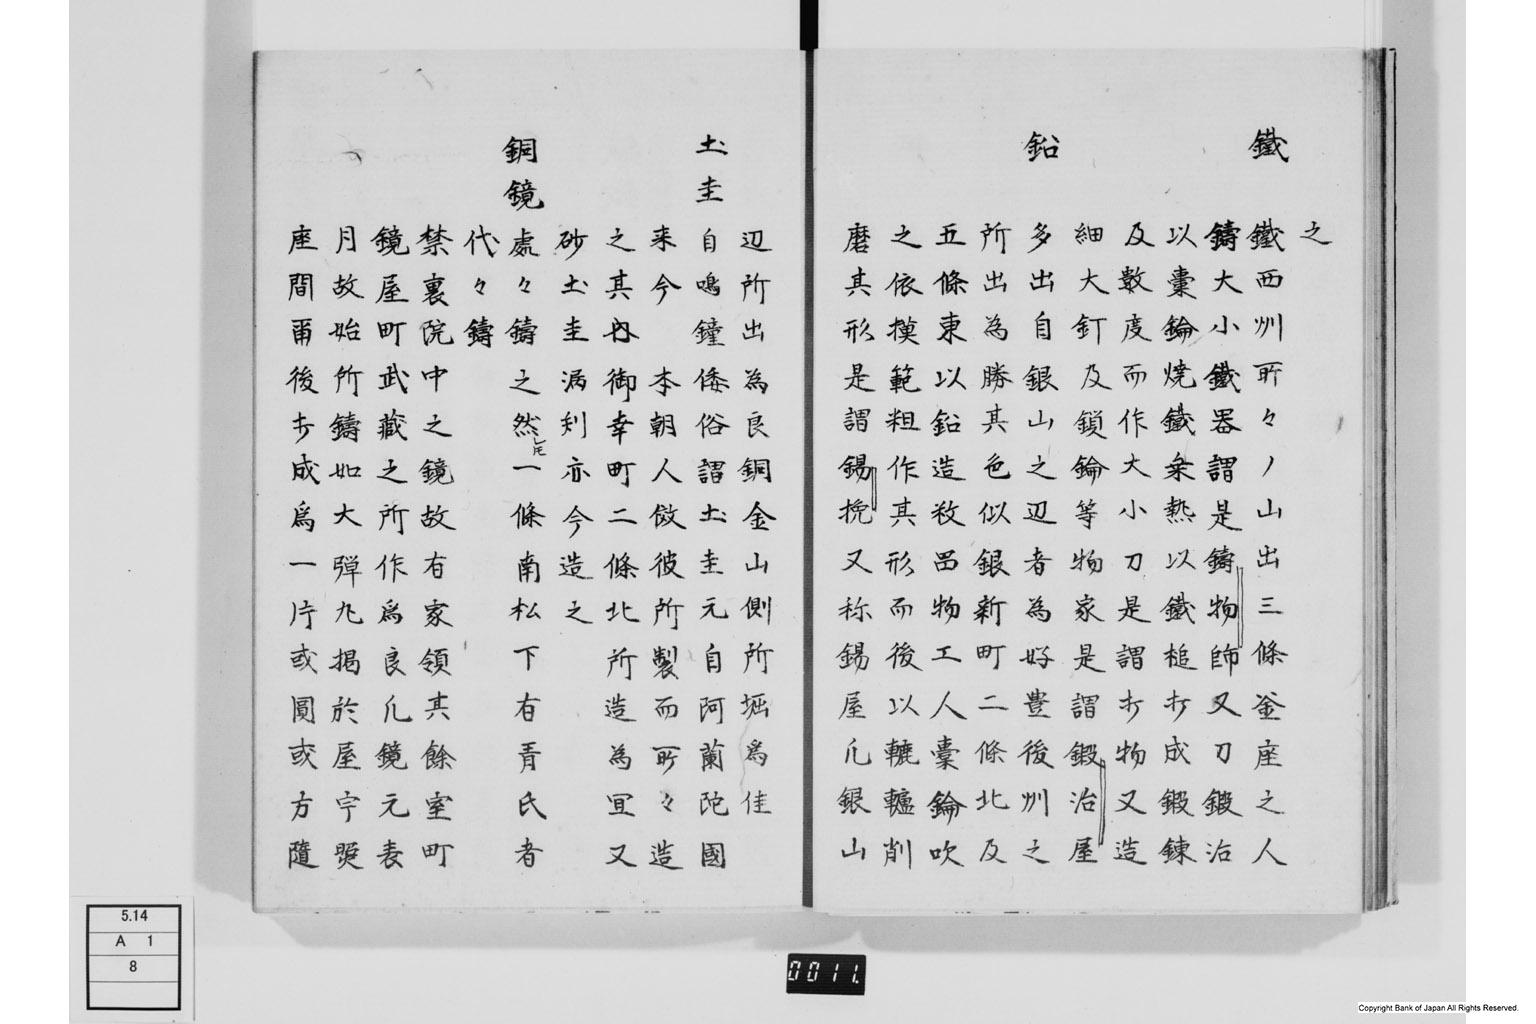 之
鐵
鐵西州所々ノ山出三條釜座之人
鑄大小鐵器謂是鑄物師又刀鍛治
以槖鑰焼鐵衆熱以鐵槌打成鍛鍊
及數度而作大小刀是謂打物又造
細大釘及鎖鑰等物家是謂鍛治屋
鉛
多出自銀山之辺者為好豊後州之
所出為勝其色似銀新町二條北及
五條東以鉛造敉畄物工人槖鑰吹
之依摸範粗作其形而後以轆轤削
磨其形是謂錫挽又称錫屋凢銀山
辺所出為良銅金山側所堀爲佳
土圭
自鳴鐘倭俗謂土圭元自阿蘭陀國
来今 本朝人倣彼所製而所々造
之其内御幸町二條北所造為冝又
砂土圭漏刻亦今造之
銅鏡
處々鑄之然一條南松下有青氏者
代々鑄
禁裏院中之鏡故有家領其餘室町
鏡屋町武藏之所作爲良凢鏡元表
月故始所鑄如大弾丸揭於屋宇㷼
座間甭後打成爲一片或圓或方隨
5.14
A 1
8
0011.
Copyright Bank of Japan All Rights Reserved.